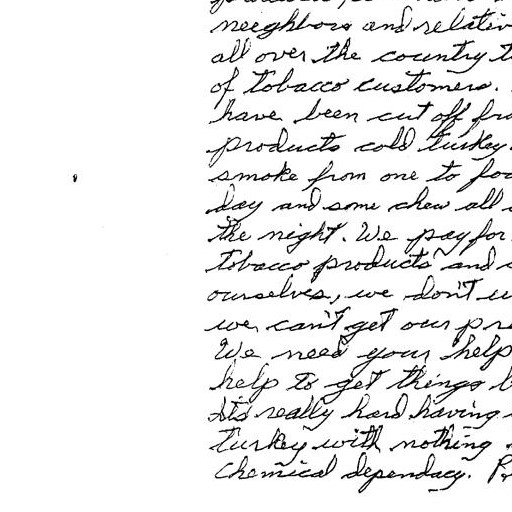 neeghbors and relativ
all over the country t
of tobacco customers.
have been cut off fro
products cold turkey.
smoke from one to fo
day and some chew all
the night. We pay for
tobacco products and
ourselves, we don't u
we can't get our pro
We need your help
help to get things b
Its really hard having
turkey with nothing
chemical dependacy. Pr